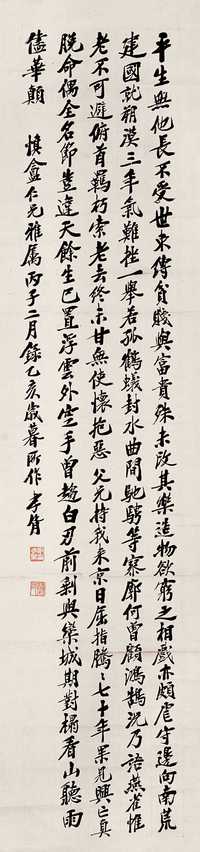 平生無他長不受世束縛貧賤與富貴殊未改其樂造物欲窮之相戲亦頗虐守邊向南荒
建國就朔漠三年氣難挫一舉若孤鶴蟻封水曲間馳騁等寥廓何曾顧鴻鵠況乃語燕雀惟
老不可避俯首羈朽索老去終未甘無使懷抱惡 父兄持我來京日屈指騰〻七十年果見興亡真
脫命偶全名節豈違天餘生已置浮雲外空手曾趨白刃前剩與欒城期對榻看山聽雨
儘華顛 慎盦仁兄雅屬丙子二月錄乙亥歲暮所作 孝胥